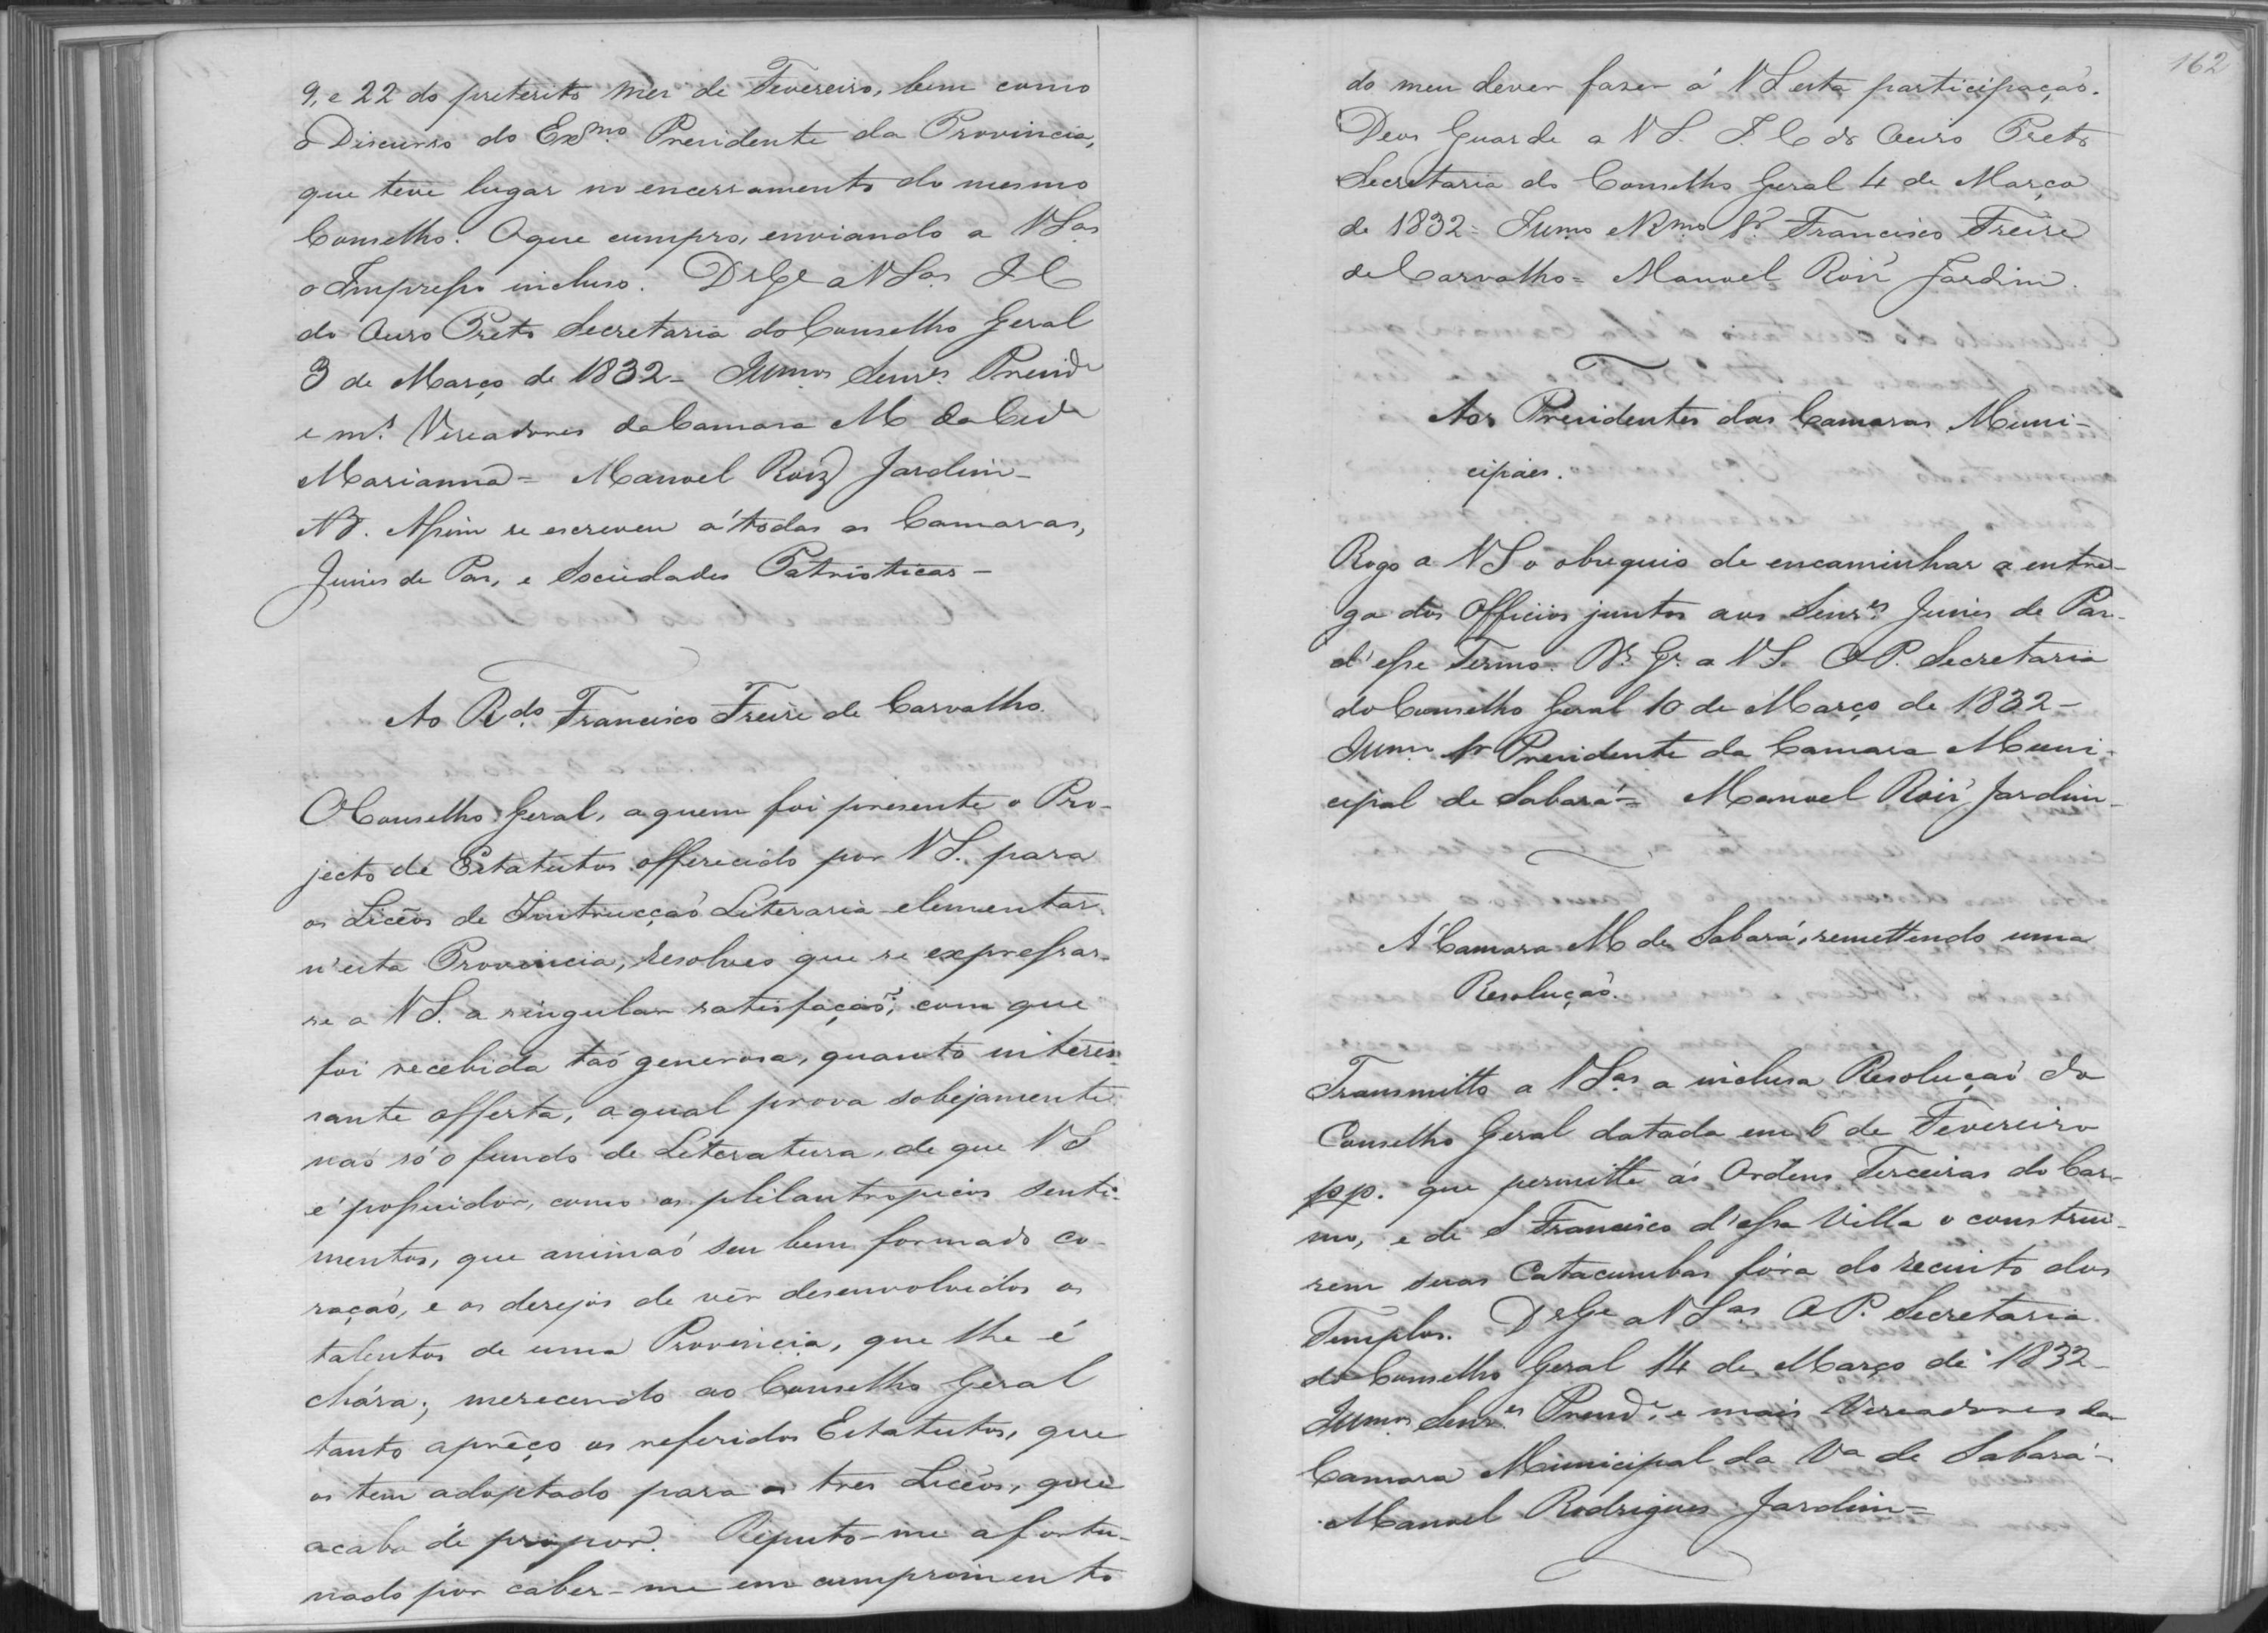 9, e 22 do preterito mez de Fevereiro, bem como
o Discurso do Exmo. Presidente da Provincia,
que teve lugar no encerramento do mesmo
Conselho. Oque cumpro, enviando a VSas
o Impresso incluso. Ds Ge a VSas I C
do Ouro Preto Secretaria do Conselho Geral
3 de Março de 1832 - Illmos Senres Preside
e ms. Vereadores da Camara M da Cide
Marianna = Manoel Roiz Jardim -
NB. Assim se escreveu á todas as Camaras,
Juizes de Paz, e Sociedades Patrioticas -
Ao Rdo. Francisco Freire de Carvalho.
O Conselho Geral, aquem foi presente o Pro-
jecto de Estatutos offerecido por VS. para
os Licêos de Instrucção Literaria elementar
n'esta Provincia, resolveo que se expressas-
se a VS. a singular satisfação, com que
foi recebida taõ generosa, quanto interes-
sante offerta, aqual prova sobejamente
naõ só o fundo de Literatura, de que VS
é possuidor, como os philantropicos senti-
mentos, que animaõ seu bem formado co-
raçaõ, e os desejos de vêr desenvolvidos os
talentos de uma Provincia, que lhe é
chára; merecendo ao Conselho Geral
tanto aprêço os referidos Estatutos, que
os tem adoptado para os tres Licêos, que
acaba de propor. Reputo-me afortu-
nado por caber-me em cumprimento
162
do meu dever fazer á VS esta participaçaõ.
Deos Guarde a VS. I. C do Ouro Preto
Secretaria do Conselho Geral 4 de Março
de 1832 = Illmo e Rmo Sr. Francisco Freire
de Carvalho = Manoel Roiz Jardim.
Aos Presidentes das Camaras Muni-
cipaes.
Rogo a VS o obsequio de encaminhar a entre-
ga dos Officios juntos aos Senres Juizes de Paz
d'esse Termo. Ds Ge. a VS. O P. Secretaria
do Conselho Geral 10 de Março de 1832 -
Illmo Sr Presidente da Camara Muni-
cipal de Sabará = Manoel Roiz Jardim -
A' Camara M de Sabará, remettendo uma
Resoluçaõ.
Transmitto a VSas a inclusa Resoluçaõ do
Conselho Geral datada em 6 de Fevereiro
pp. que permitte ás Ordens Terceiras do Car-
mo, e de S Francisco d'essa Villa o construi-
rem suas Catacumbas fóra do recinto dos
Templos. Ds Ge a VSas O P. Secretaria
do Conselho Geral 14 de Março de 1832 -
Illmos Senres Preside, e mais Vereadores da
Camara Municipal da Va de Sabará -
Manoel Rodrigues Jardim =